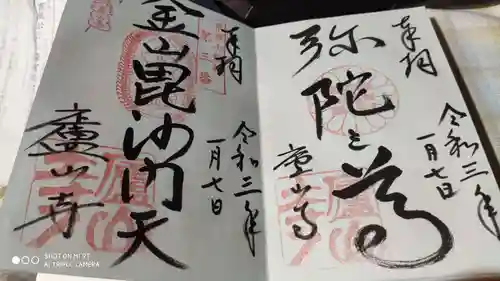 奉拝
弥陀三尊
令和三年
一月七日
廬山寺
奉拝
第三番
金山毘沙門天
令和三年
一月七日
廬山寺
SHOT ON MI 9T
AI TRIPLE CAMERA